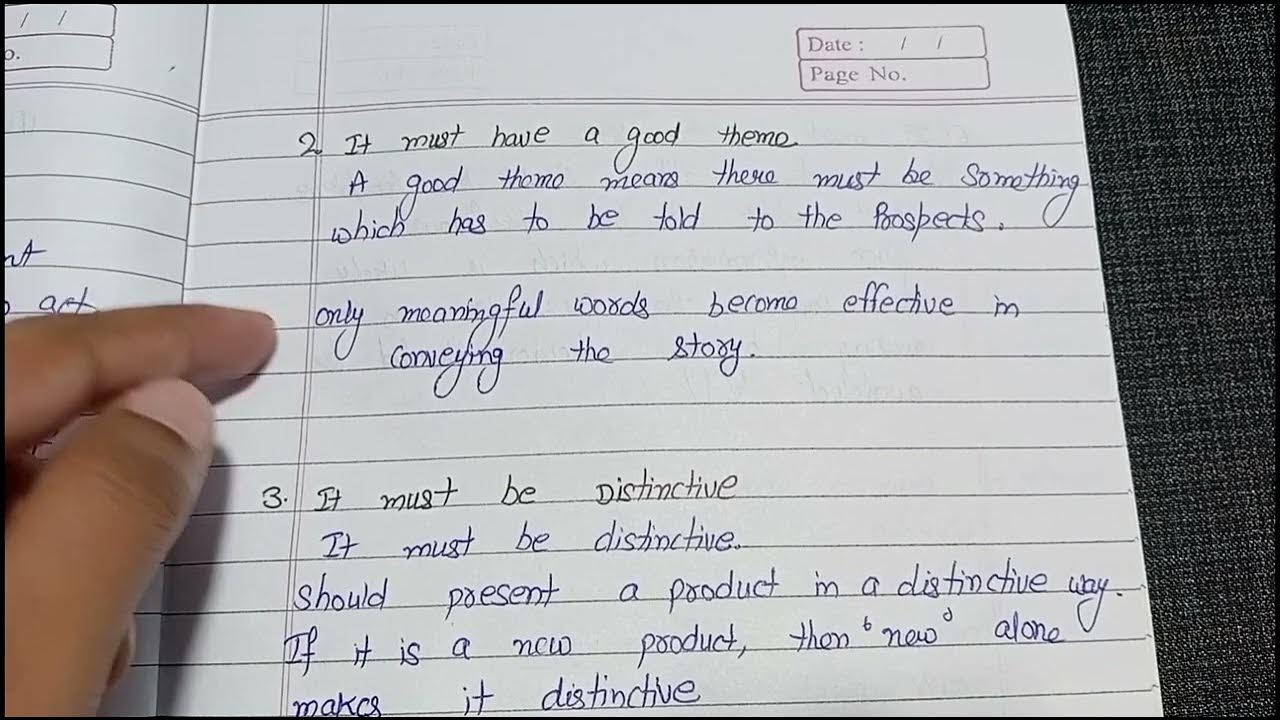 / /
o.
Date : / /
Page No.
2 It must have a good theme.
A good theme means there must be something
which has to be told to the Prospects.
nt
act
only meaningful words become effective in
conveying the story.
3. It must be Distinctive
It must be distinctive.
Should present a product in a distinctive way.
If it is a new product, then 'new' alone
makes it distinctive